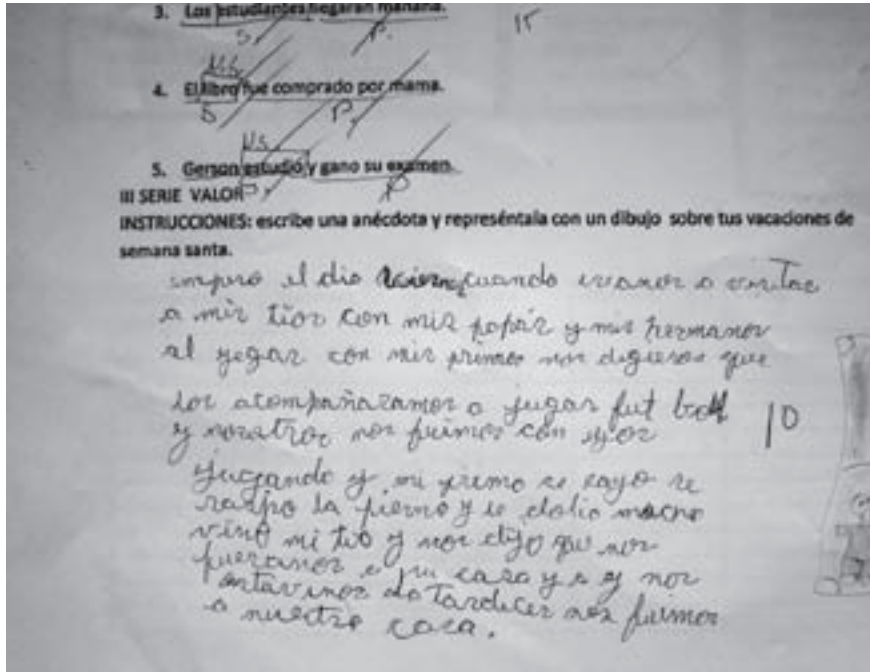 3. Los estudiantes llegaran mañana.
15
S P.
Ns
4. El libro fue comprado por mama.
S P.
Ns
5. Gerson estudio y gano su examen.
P
III SERIE VALOR
INSTRUCCIONES: escribe una anécdota y represéntala con un dibujo sobre tus vacaciones de
semana santa.
empero el dia viernes cuando ivamos a visitar
a mis tios con mis papás y mis hermanos
al yegar con mis primos nos digieron que
los acompañaramos a jugar fut boll
10
y nosotros nos fuimos con eyos
jugando y mi primo se cayo se
raspo la pierna y le dolio mucho
vino mi tio y nos dijo que nos
fueramos a su casa y a y nos
tardecer nos fuimos
a nuestra casa.